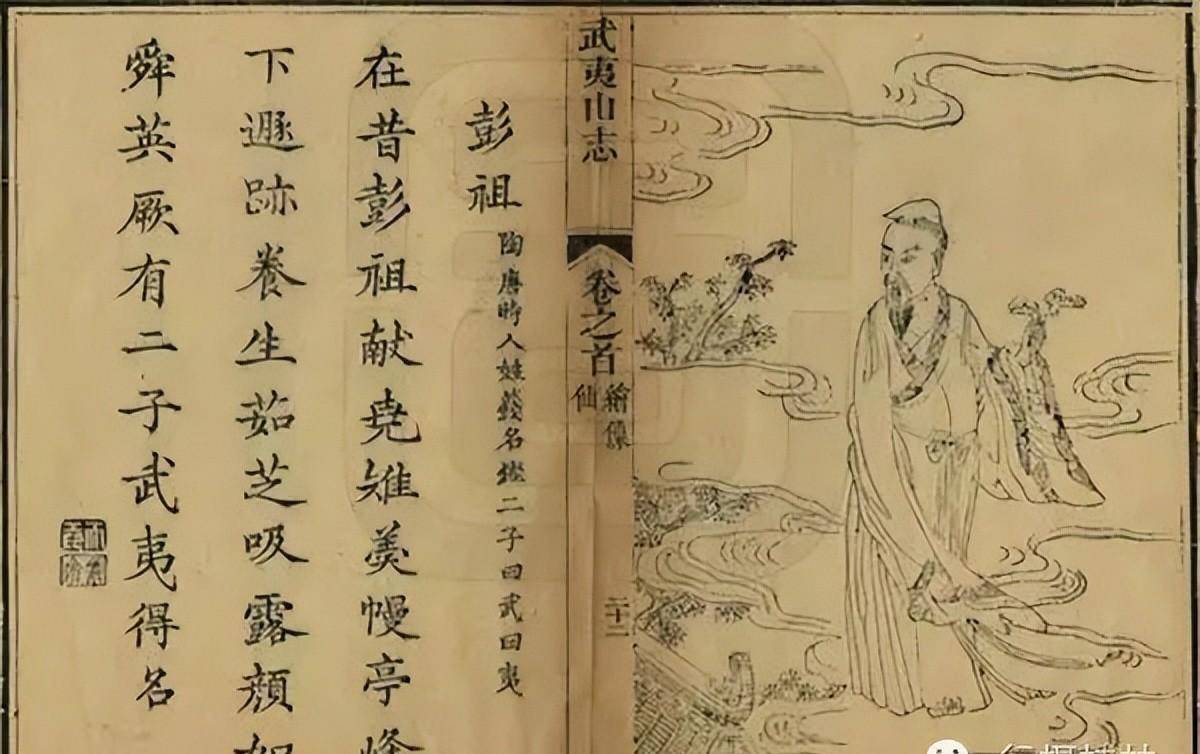 武夷山志
卷之首
繪像
仙
二十二
彭祖
陶唐時人姓籛名鏗二子曰武曰夷
在昔彭祖献尭雉羮幔亭峰
下遯跡養生茹芝吸露顔如
舜英厥有二子武夷得名